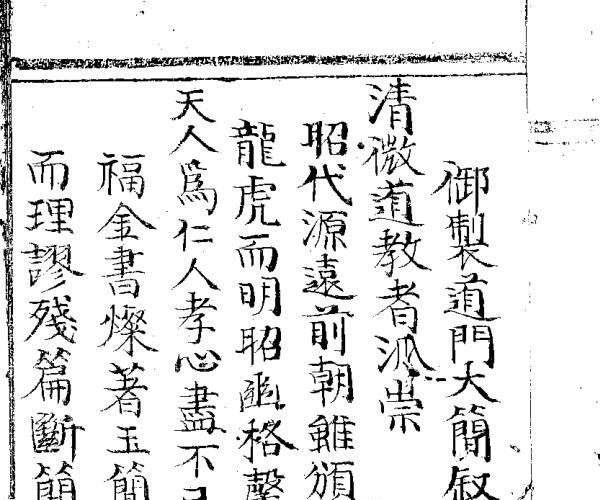 御製道門大簡叙
清微道教者派崇
昭代源遠前朝雖頒
龍虎而明昭幽格馨
天人為仁人孝心盡不
福金書燦著玉簡
而理謬殘篇斷簡